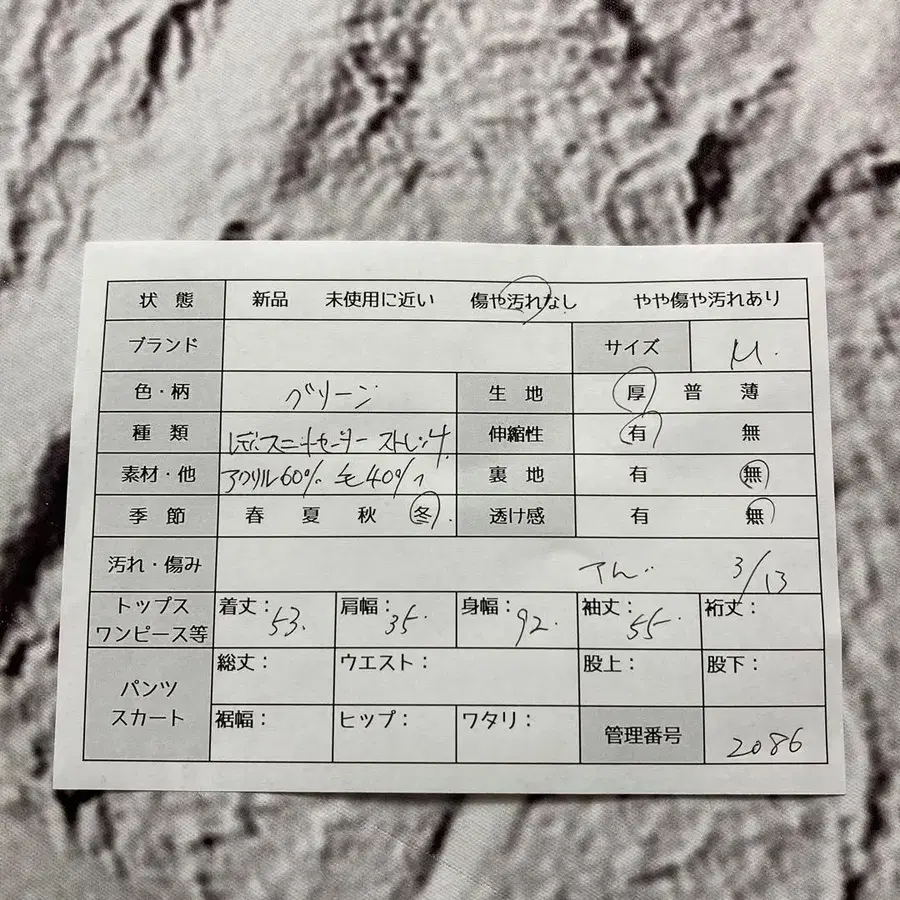 状態 新品 未使用に近い 傷や汚れなし やや傷や汚れあり
ブランド サイズ M.
色・柄 グリーン 生地 厚 普 薄
種類 レディスニットセーター ストレッチ 伸縮性 有 無
素材・他 アクリル60% 毛40% 裏地 有 無
季節 春 夏 秋 冬 透け感 有 無
汚れ・傷み 3/13
トップス
ワンピース等 着丈：53. 肩幅：35. 身幅：92. 袖丈：55. 裄丈：
パンツ
スカート 総丈： ウエスト： 股上： 股下：
裾幅： ヒップ： ワタリ： 管理番号 2086